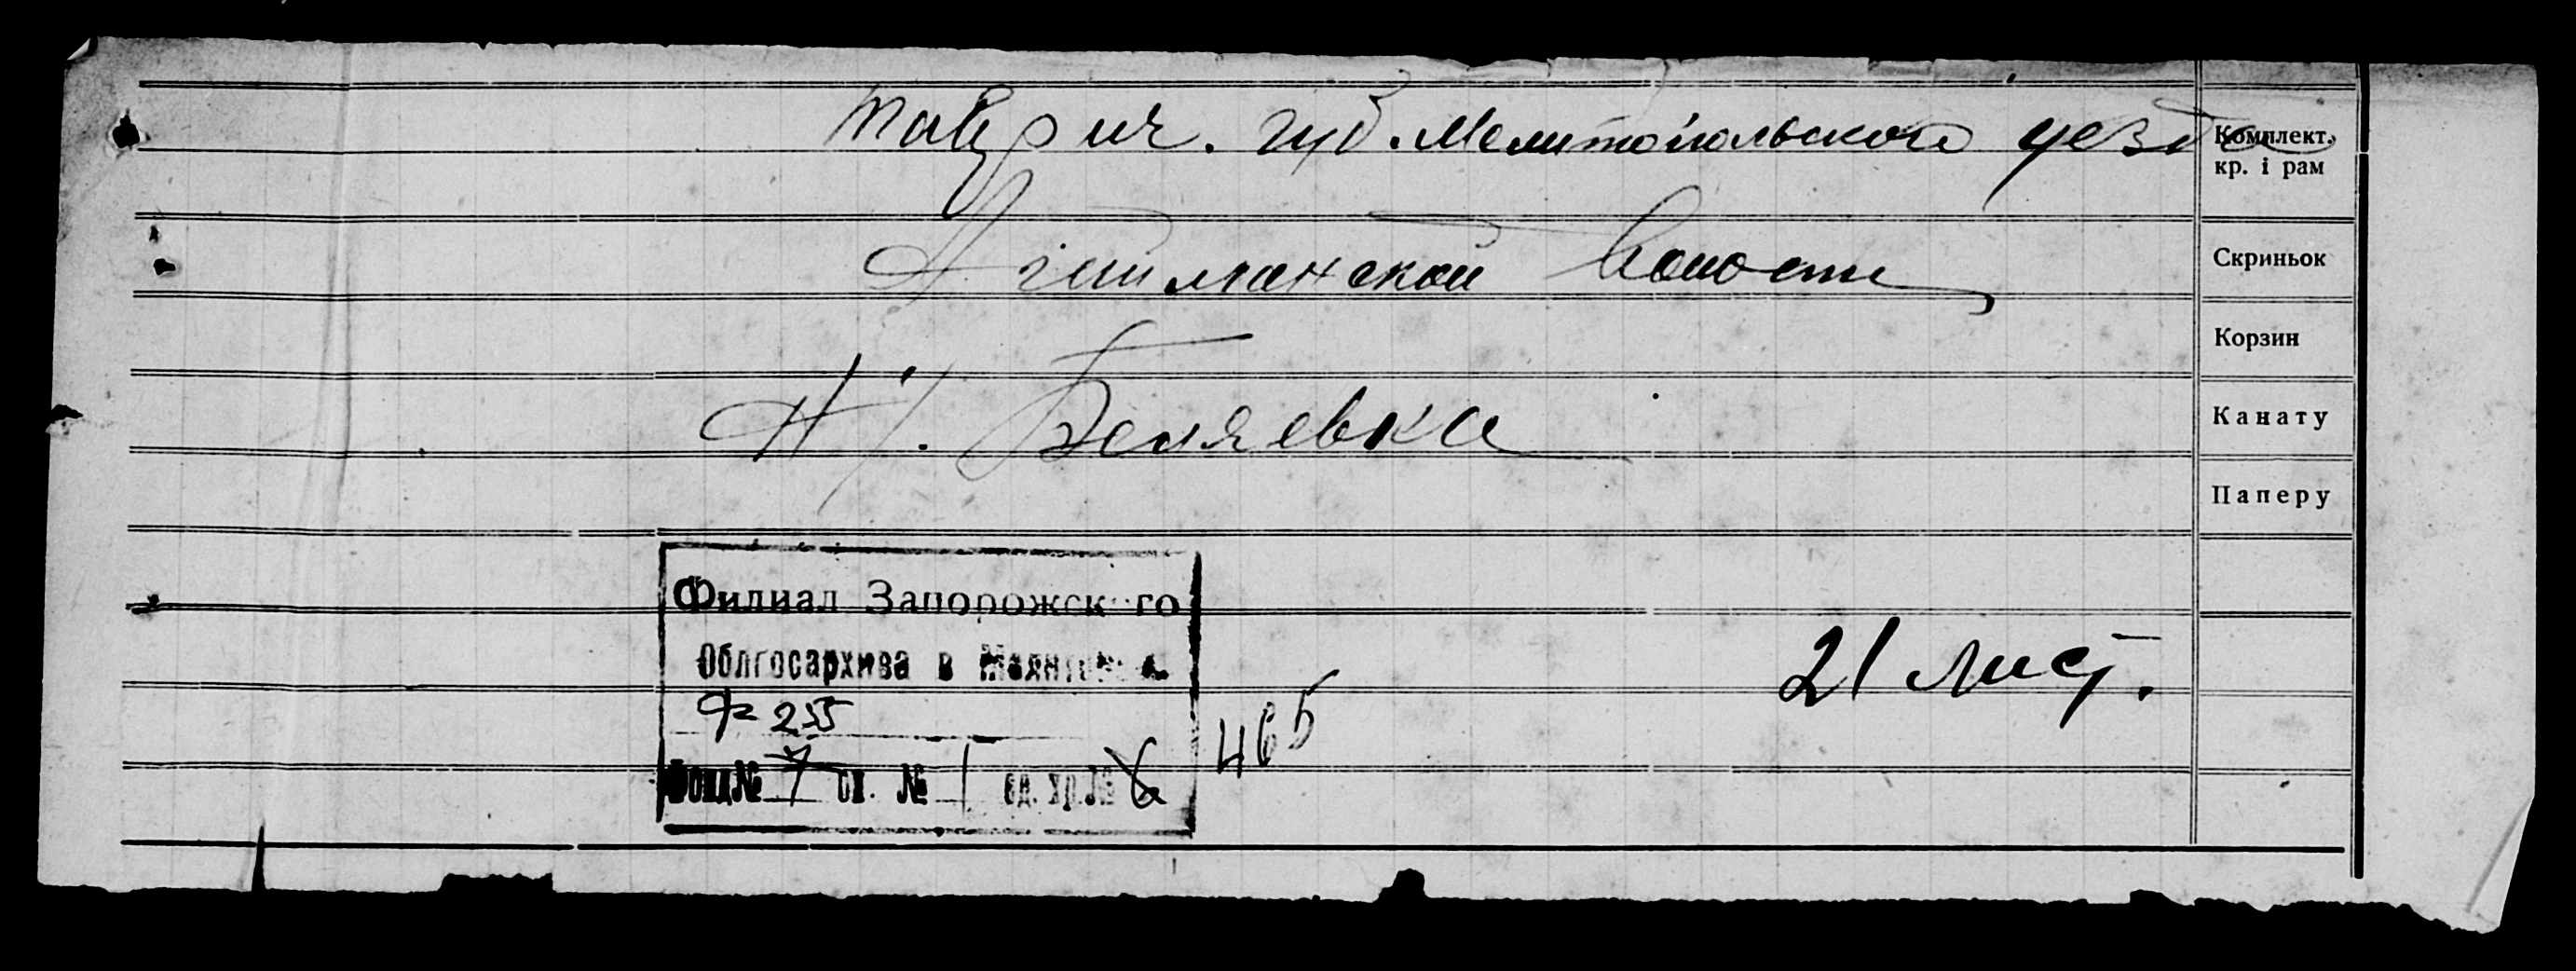 Таврич. губ. Мелитопольского уезда
Агайманской волости
Н/. Беляевка
Комплект.
кр. і рам
Скриньок
Корзин
Канату
Паперу
Филиал Запорожск го
Облгосархива в
Ф 255
Фонд № 7 оп. № 1 ед. хр. №
465
21 лист.